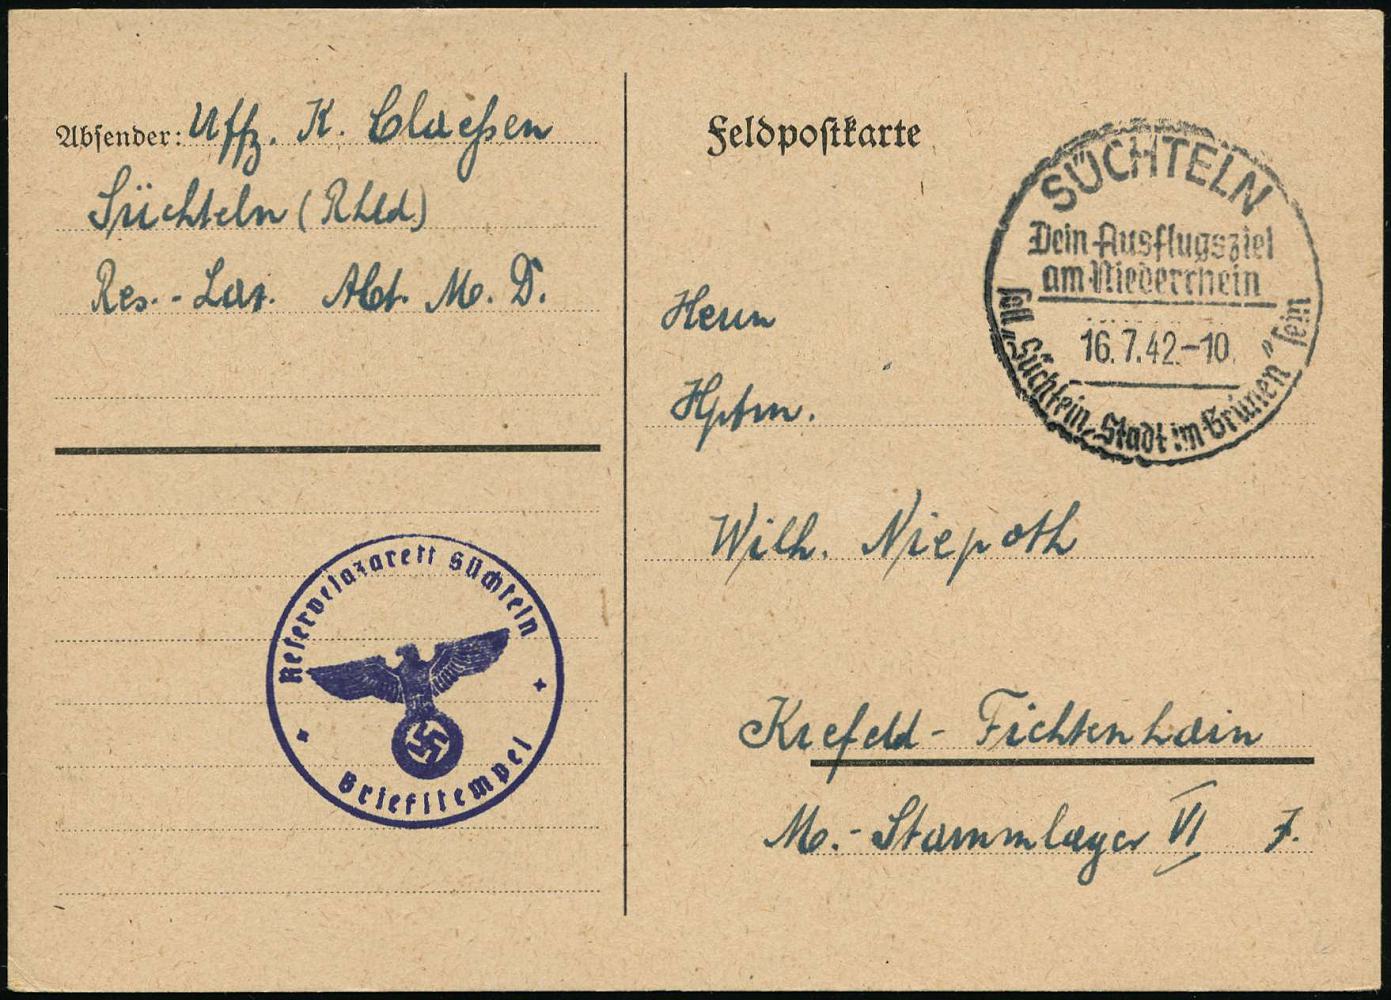 Absender: Uffz. K. Claeßen
Süchteln (Rhld.)
Res.-Laz. Abt. M. D.
Reservelazarett Süchteln
Briefstempel
Feldpostkarte
SÜCHTELN
Dein Ausflugsziel
am Niederrhein
16.7.42.-10
soll „Süchteln, Stadt im Grünen“ sein
Herrn
Hptm.
Wilh. Niepoth
Krefeld-Fichtenhain
M.-Stammlager VI J.